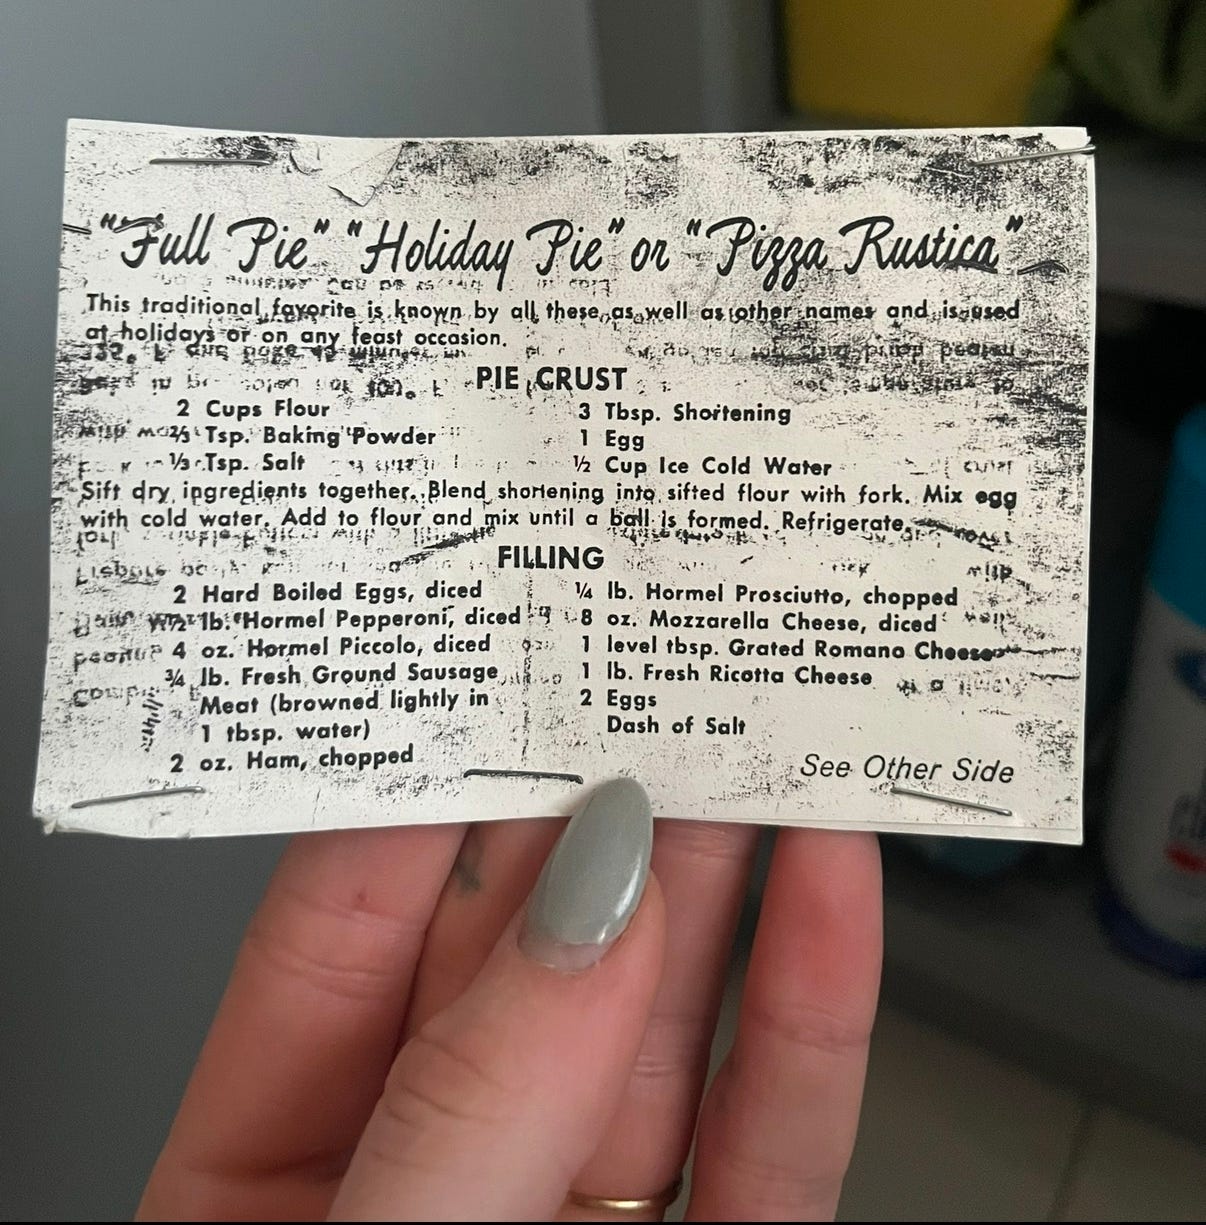 "Full Pie" "Holiday Pie" or "Pizza Rustica"
This traditional favorite is known by all these as well as other names and is used
at holidays or on any feast occasion.
PIE CRUST
2 Cups Flour
⅔ Tsp. Baking Powder
⅓ Tsp. Salt
3 Tbsp. Shortening
1 Egg
½ Cup Ice Cold Water
Sift dry ingredients together. Blend shortening into sifted flour with fork. Mix egg
with cold water. Add to flour and mix until a ball is formed. Refrigerate.
FILLING
2 Hard Boiled Eggs, diced
½ lb. Hormel Pepperoni, diced
4 oz. Hormel Piccolo, diced
¾ lb. Fresh Ground Sausage
Meat (browned lightly in
1 tbsp. water)
2 oz. Ham, chopped
¼ lb. Hormel Prosciutto, chopped
8 oz. Mozzarella Cheese, diced
1 level tbsp. Grated Romano Cheese
1 lb. Fresh Ricotta Cheese
2 Eggs
Dash of Salt
See Other Side